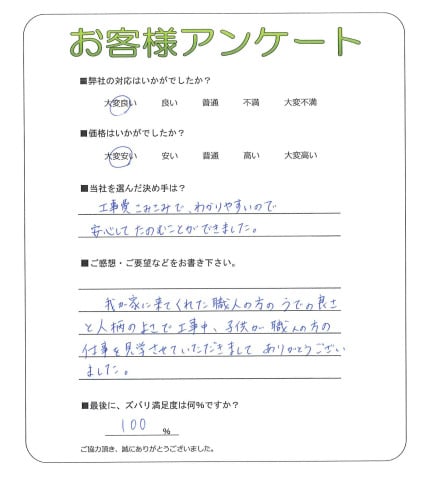 お客様アンケート
■弊社の対応はいかがでしたか？
大変良い 良い 普通 不満 大変不満
■価格はいかがでしたか？
大変安い 安い 普通 高い 大変高い
■当社を選んだ決め手は？
工事費こみこみで、わかりやすいので
安心してたのむことができました。
■ご感想・ご要望などをお書き下さい。
我が家に来てくれた職人の方のうでの良さ
と人柄のよさで工事中、子供が職人の方の
仕事を見学させていただきましてありがとうござい
ました。
■最後に、ズバリ満足度は何%ですか？
100 %
ご協力頂き、誠にありがとうございました。